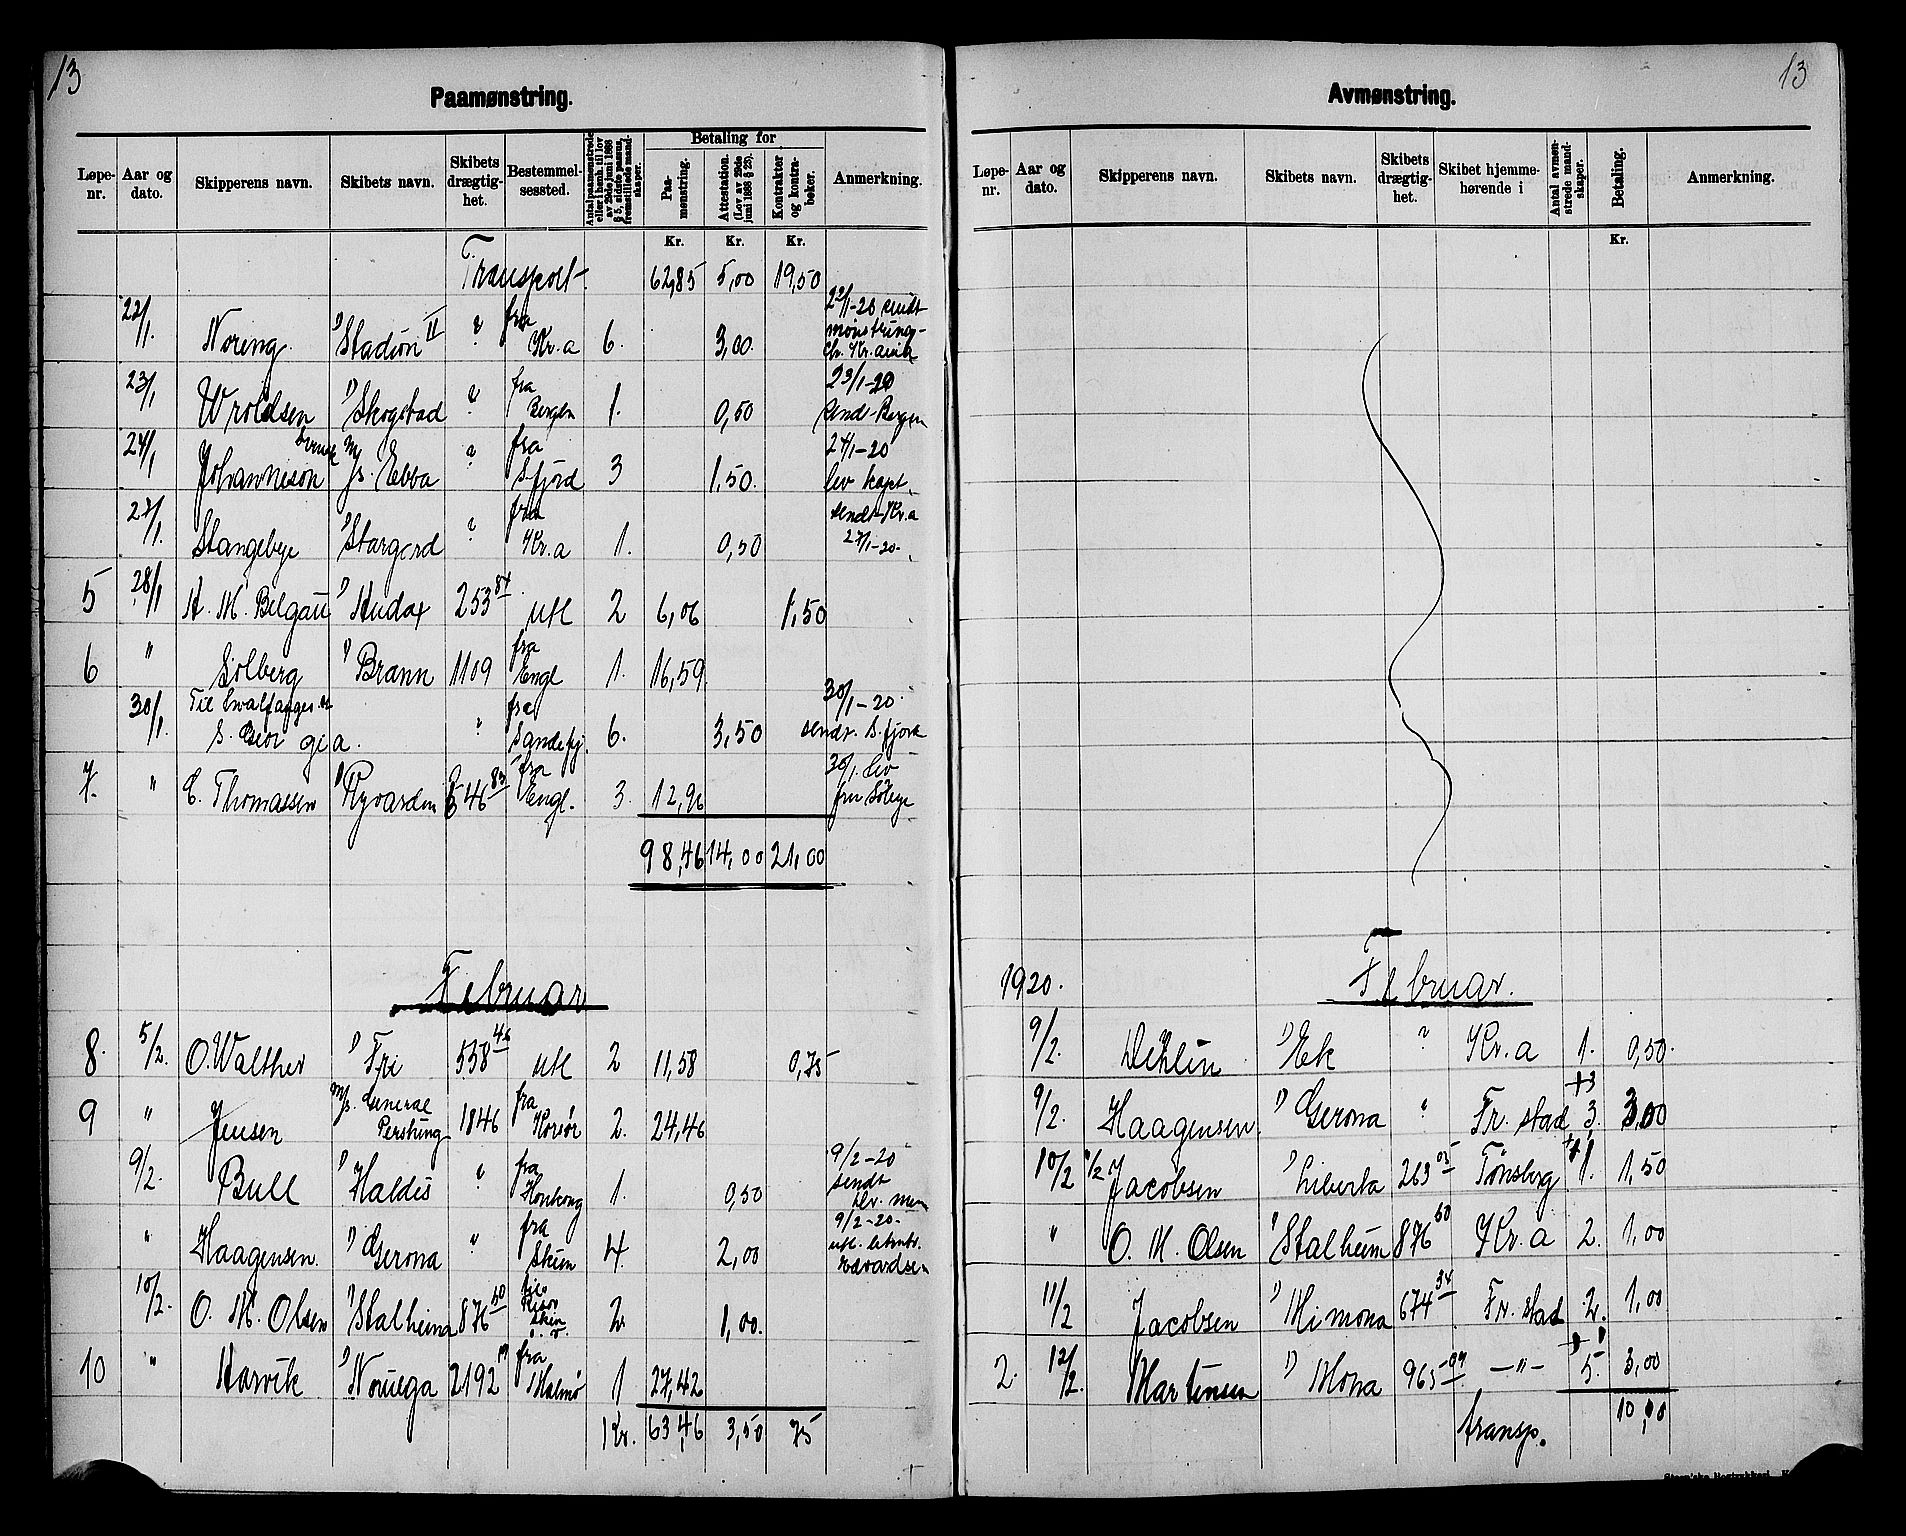 13
Paamønstring.
Løpe-nr. Aar og dato. Skipperens navn. Skibets navn. Skibets drægtig-het. Bestemmel-sessted. Betaling for Paa-mønstring. Attestation. (Lov av 29de juni 1888 § 25). Kontrakter og kontra-bøker. Anmerkning.
Kr. Kr. Kr.
Transport 62,85 5,00 19,50
22/1. Noreng. "Stadion II " fra Kr.a 6. 3,00. 22/1-20 sendt mønstrings-
23/1 Wroldsen "Skogstad " fra Bergen 1. 0,50 23/1-20 sendt Bergen
24/1 Johannison M/s. Ebba " fra S.fjord 3 1,50. 24/1-20 lev kapt.
27/1. Stangebye "Stargard " fra Kr.a 1. 0,50 sendt Kr.a 27/1-20.
5 28/1 A. M. Belgau "Audax 253 84 utl 2 6,06 1,50
6 " Solberg "Brann 1109 fra Engl 1. 16,59
30/1. Til hvalfanger S. Georgia. " fra Sandefj. 6. 3,50 30/1-20. sendt. S.fjord
7. " C. Thomassen "Ryvarden 646 83 fra Engl. 3. 12,96 30/1. lev fru Solbye
98,46 14,00 21,00
Februar
8. 5/2. O. Walther "Fri 558 46 utl 2 11,58 0,75
9 " Jensen M/s. General Pershing 1846 fra Horsør 2. 24,46
9/2. Bull "Haldis " fra Honkong 1. 0,50 9/2-20 sendt
" Haagensen. "Gerona " fra Skien 4. 2,00 9/2-20. utl.
10/2. O. M. Olsen "Stalheim 876 50 til Risør Skien 2. 1,00.
10 " Aarvik "Noruega 2192 fra Malmø 1 27,42
Kr. 63,46 3,50 75
13
Avmønstring.
Løpe-nr. Aar og dato. Skipperens navn. Skibets navn. Skibets drægtig-het. Skibet hjemme-hørende i Antal avmøn-strede mand-skaper. Betaling. Anmerkning.
Kr.
1920. Februar.
9/2. Dehlin "Ek " Kr.a 1. 0,50.
9/2. Haagensen. "Gerona " Fr.stad +3 3. 3,00
10/2 Jacobsen "Liberta 263 05 Tønsberg 1. 1,50
" O. M. Olsen "Stalheim 876 50 Kr.a 2. 1,00
11/2 Jacobsen "Mimona 674 34 Fr.stad 2. 1,00
2. 12/2. Martinsen "Mona 965 —"— 5. 3,00
transp. 10,00